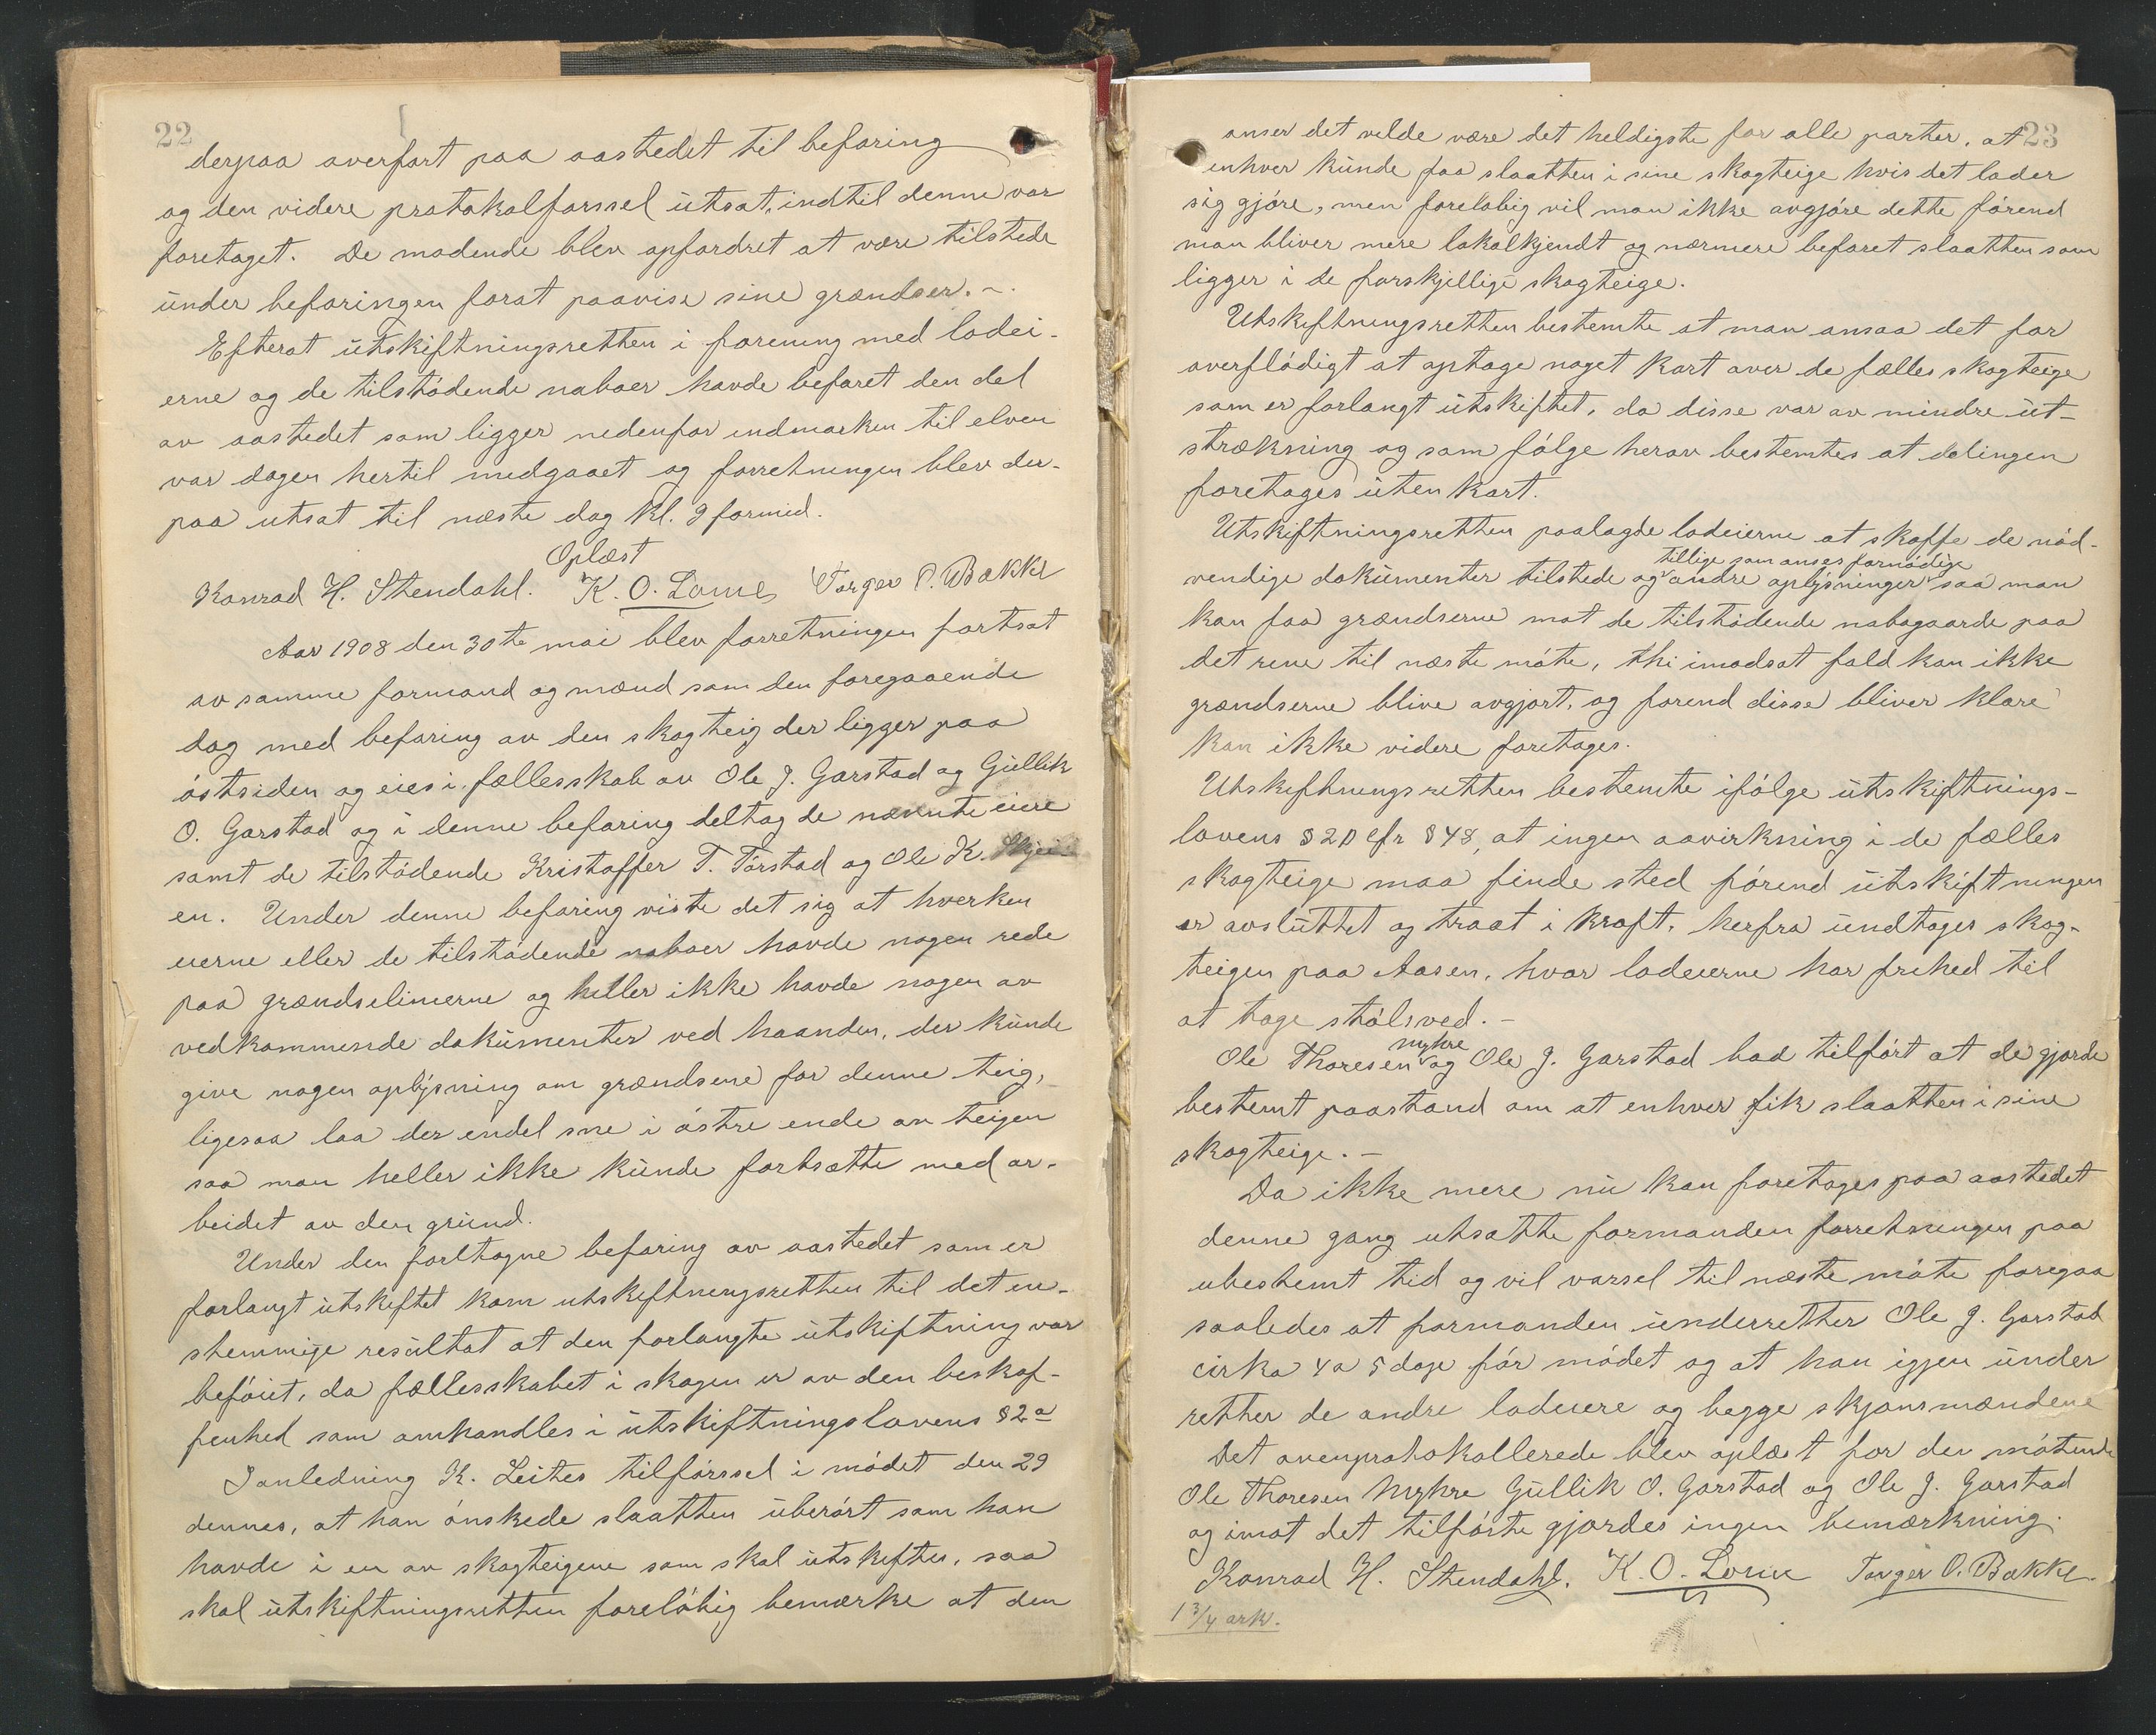 22
derpaa overført paa aastedet til befaring
og den videre protokolførssel utsat, indtil denne var
foretaget. De mødende blev opfordret at være tilstede
under befaringen forat paavise sine grændser. –.
Efterat utskiftningsretten i forening med lodei-
erne og de tilstødende naboer havde befaret den del
av aastedet som ligger nedenfor indmarken til elven
var dagen hertil medgaaet og forretningen blev der-
paa utsat til næste dag kl. 9 formid.
Oplæst
Konrad H. Stendahl. K. O. Lome Torger O. Bakke
Aar 1908 den 30te mai blev forretningen fortsat
av samme formand og mænd som den foregaaende
dag med befaring av den skogteig der ligger paa
østsiden og eies i fællesskab av Ole J. Garstad og Gullik
O. Garstad og i denne befaring deltog de nævnte eiere
samt de tilstødende Kristoffer T. Tørstad og Ole K. Skjei-
en. Under denne befaring viste det sig at hverken
eierne eller de tilstødende naboer havde nogen rede
paa grændselinierne og heller ikke havde nogen av
vedkommende dokumenter ved haanden, der kunde
give nogen oplysning om grændsene for denne teig,
ligesaa laa der endel sne i østre ende av teigen
saa man heller ikke kunde fortsætte med ar-
beidet av den grund.
Under den foretagne befaring av aastedet som er
forlangt utskiftet kom utskiftningsretten til det en-
stemmige resultat at den forlangte utskiftning var
beføiet, da fællesskabet i skogen er av den beskaf-
fenhed som omhandles i utskiftningslovens §2a
I anledning K. Leites tilførssel i mødet den 29
dennes, at han ønskede slaatten uberørt som han
havde i en av skogteigene som skal utskiftes, saa
skal utskiftningsretten foreløbig bemærke at den
23
anser det vilde være det heldigste for alle parter, at
enhver kunde faa slaatten i sine skogteige hvis det lader
sig gjøre, men foreløbig vil man ikke avgjøre dette førend
man bliver mere lokalkjendt og nærmere befaret slaatten som
ligger i de forskjellige skogteige.
Utskiftningsretten bestemte at man ansaa det for
overflødigt at optage noget kart over de fælles skogteige
som er forlangt utskiftet, da disse var av mindre ut-
strækning og som følge herav bestemtes at delingen
foretages uten kart.
Utskiftningsretten paalagde lodeierne at skaffe de nød-
tillige som anses fornødige
vendige dokumenter tilstede og andre oplysninger saa man
kan faa grændserne mot de tilstødende nabogaarde paa
det rene til næste møte, thi imodsat fald kan ikke
grændserne blive avgjort, og førend disse bliver klare
kan ikke videre foretages.
Utskiftningsretten bestemte ifølge utskiftnings-
lovens §20 cfr §48, at ingen aavirkning i de fælles
skogteige maa finde sted førend utskiftningen
er avsluttet og traat i kraft, herfra undtages skog-
teigen paa Aasen, hvor lodeierne har frihed til
at tage stølsved. –
myhre
Ole Thoresen og Ole J. Garstad bad tilført at de gjorde
bestemt paastand om at enhver fik slaatten i sine
skogteige. –
Da ikke mere nu kan foretages paa aastedet
denne gang utsatte formanden forretningen paa
ubestemt tid og vil varsel til næste møte foregaa
saaledes at formanden underretter Ole J. Garstad
cirka 4 a 5 dage før mødet og at han igjen under
retter de andre lodeiere og begge skjønsmændene
Det ovenprotokollerede blev oplæst for den møtende
Ole Thoresen Myhre Gullik O. Garstad og Ole J. Garstad
og imot det tilførte gjordes ingen bemærkning.
Konrad H. Stendahl. K. O. Lome Torger O. Bakke.
1 3/4 ark.